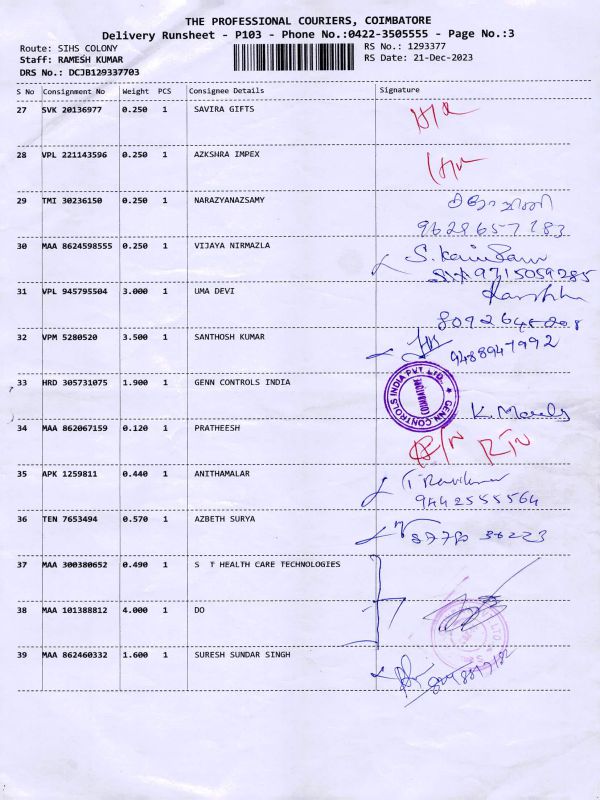 THE PROFESSIONAL COURIERS, COIMBATORE
Delivery Runsheet - P103 - Phone No.:0422-3505555 - Page No.:3
Route: SIHS COLONY
RS No.: 1293377
Staff: RAMESH KUMAR
RS Date: 21-Dec-2023
DRS No.: DCJB129337703
S No Consignment No Weight PCS Consignee Details Signature
27 SVK 20136977 0.250 1 SAVIRA GIFTS
28 VPL 221143596 0.250 1 AZKSHRA IMPEX
29 TMI 30236150 0.250 1 NARAZYANAZSAMY
9628657183
30 MAA 8624598555 0.250 1 VIJAYA NIRMAZLA
9715059285
31 VPL 945795504 3.000 1 UMA DEVI
32 VPM 5280520 3.500 1 SANTHOSH KUMAR
9488947992
33 HRD 305731075 1.900 1 GENN CONTROLS INDIA
GENN CONTROLS INDIA PVT LTD.
COIMBATORE
34 MAA 862067159 0.120 1 PRATHEESH
35 APK 1259811 0.440 1 ANITHAMALAR
9442555564
36 TEN 7653494 0.570 1 AZBETH SURYA
37 MAA 300380652 0.490 1 S T HEALTH CARE TECHNOLOGIES
38 MAA 101388812 4.000 1 DO
39 MAA 862460332 1.600 1 SURESH SUNDAR SINGH